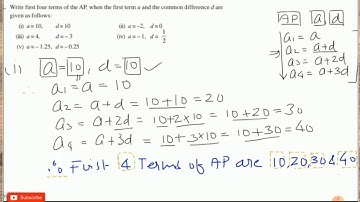 Write first four terms of the AP, when the first term a and the common difference d are
given as follows:
(i) a = 10, d = 10 (ii) a = -2, d = 0
(iii) a = 4, d = -3 (iv) a = -1, d = 1/2
(v) a = -1.25, d = -0.25
AP a d
a1 = a
a2 = a+d
a3 = a+2d
a4 = a+3d
(i) a = 10, d = 10
∴ a1 = a = 10
a2 = a+d = 10+10 = 20
a3 = a+2d = 10+2×10 = 10+20 = 30
a4 = a+3d = 10+3×10 = 10+30 = 40
∴ First 4 Terms of AP are 10,20,30 & 40
Subscribe